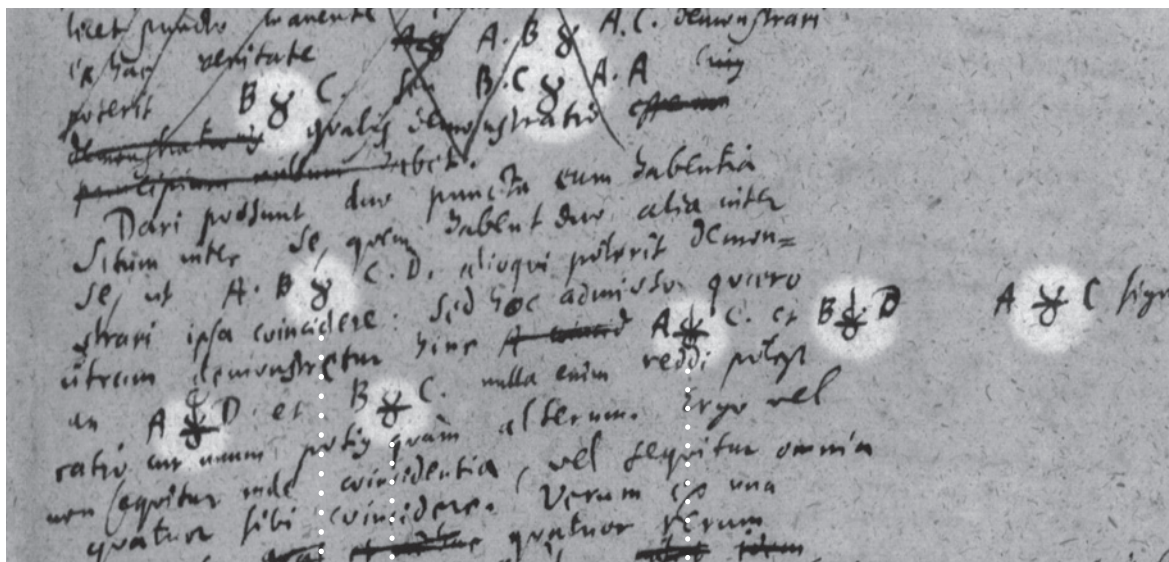 licet puncto manente A. B ४ A. C. demonstrari
ex hac veritate B. C ४ A. A
poterit B ४ C. seu
qualis demonstratio
habet.
Dari possunt duo puncta eum habentia
Situm inter se, quem habent duo alia inter
se, ut A. B ४ C. D. alioqui poterit demon=
strari ipsa coincidere. Sed hoc admisso quaero
utrum demonstretur hinc A ४ C. et B ४ D A ४ C
an A ४ D et B ४ C. nulla enim reddi potest
ratio cur unum potius quam alterum. Ergo vel
non sequitur inde coincidentia, vel sequitur omnia
quatuor sibi coincidere. Verum est una
quatuor rerum